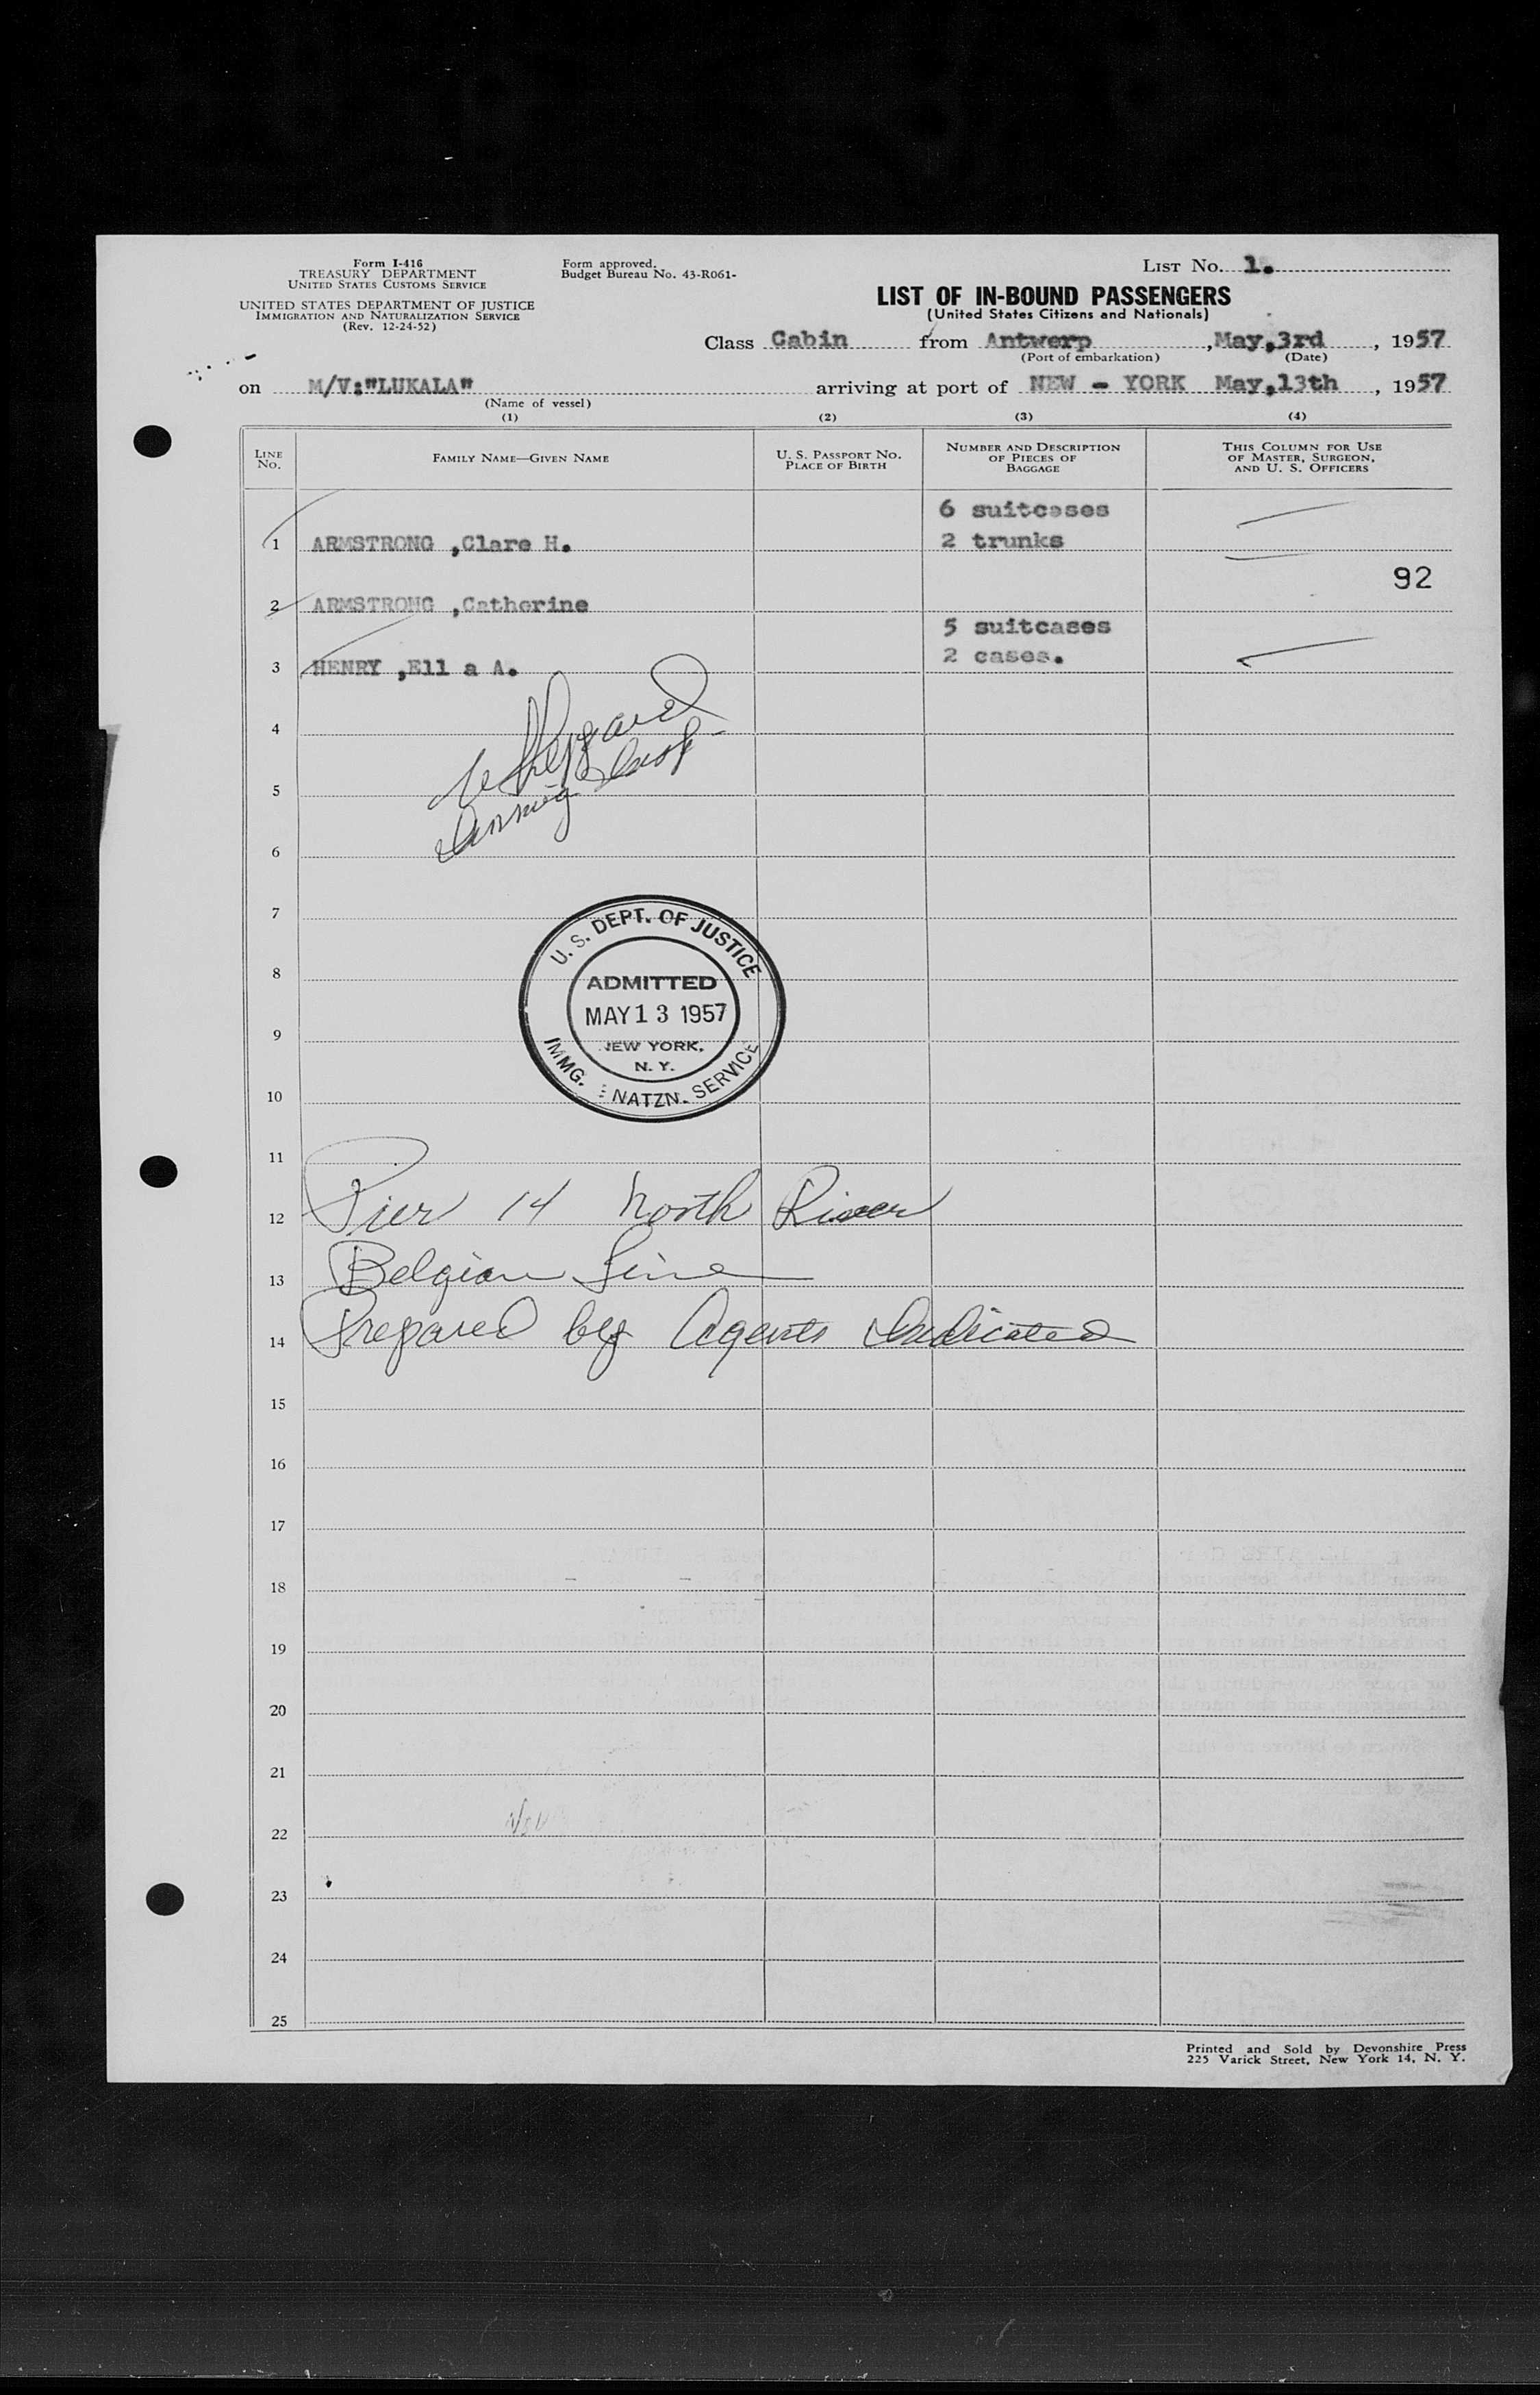 Form I-416
TREASURY DEPARTMENT
UNITED STATES CUSTOMS SERVICE
UNITED STATES DEPARTMENT OF JUSTICE
IMMIGRATION AND NATURALIZATION SERVICE
(Rev. 12-24-52)
Form approved.
Budget Bureau No. 43-R061-
LIST No. 1.
LIST OF IN-BOUND PASSENGERS
(United States Citizens and Nationals)
Class Cabin from Antwerp ,May,3rd , 1957
(Port of embarkation) (Date)
on M/V:"LUKALA" arriving at port of NEW - YORK May,13th , 1957
(Name of vessel)
(1) (2) (3) (4)
LINE No. FAMILY NAME—GIVEN NAME U. S. PASSPORT NO. PLACE OF BIRTH NUMBER AND DESCRIPTION OF PIECES OF BAGGAGE THIS COLUMN FOR USE OF MASTER, SURGEON, AND U. S. OFFICERS
6 suitcases
1 ARMSTRONG ,Clare H. 2 trunks
92
2 ARMSTRONG ,Catherine
5 suitcases
3 HENRY ,Ell a A. 2 cases.
4
5
6
7
U. S. DEPT. OF JUSTICE
8
ADMITTED
MAY 13 1957
9
NEW YORK,
N. Y.
IMMG. & NATZN. SERVICE
10
11
12 Pier 14 North River
13 Belgian Line
14 Prepared by Agents Indicated
15
16
17
18
19
20
21
22
23
24
25
Printed and Sold by Devonshire Press
225 Varick Street, New York 14, N. Y.